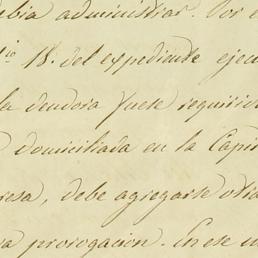 ebia administrar. Por e
tio 18. del expediente ejecu
la deudora fuese requirid
domiciliada en la Capi
resa, debe agregarse otra
va prorogacion. En ese